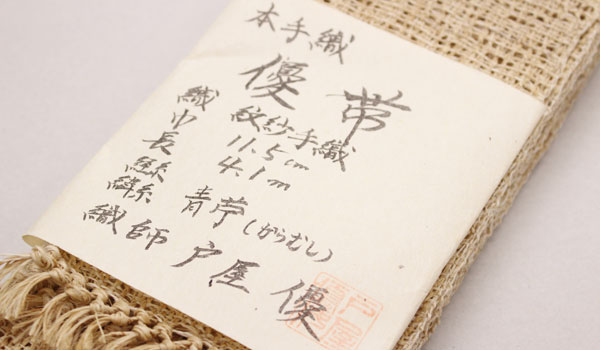 本手織
優帯
織 紋紗手織
巾 11.5cm
長 4.1m
経糸
緯糸 青苧(からむし)
織師 戸屋 優